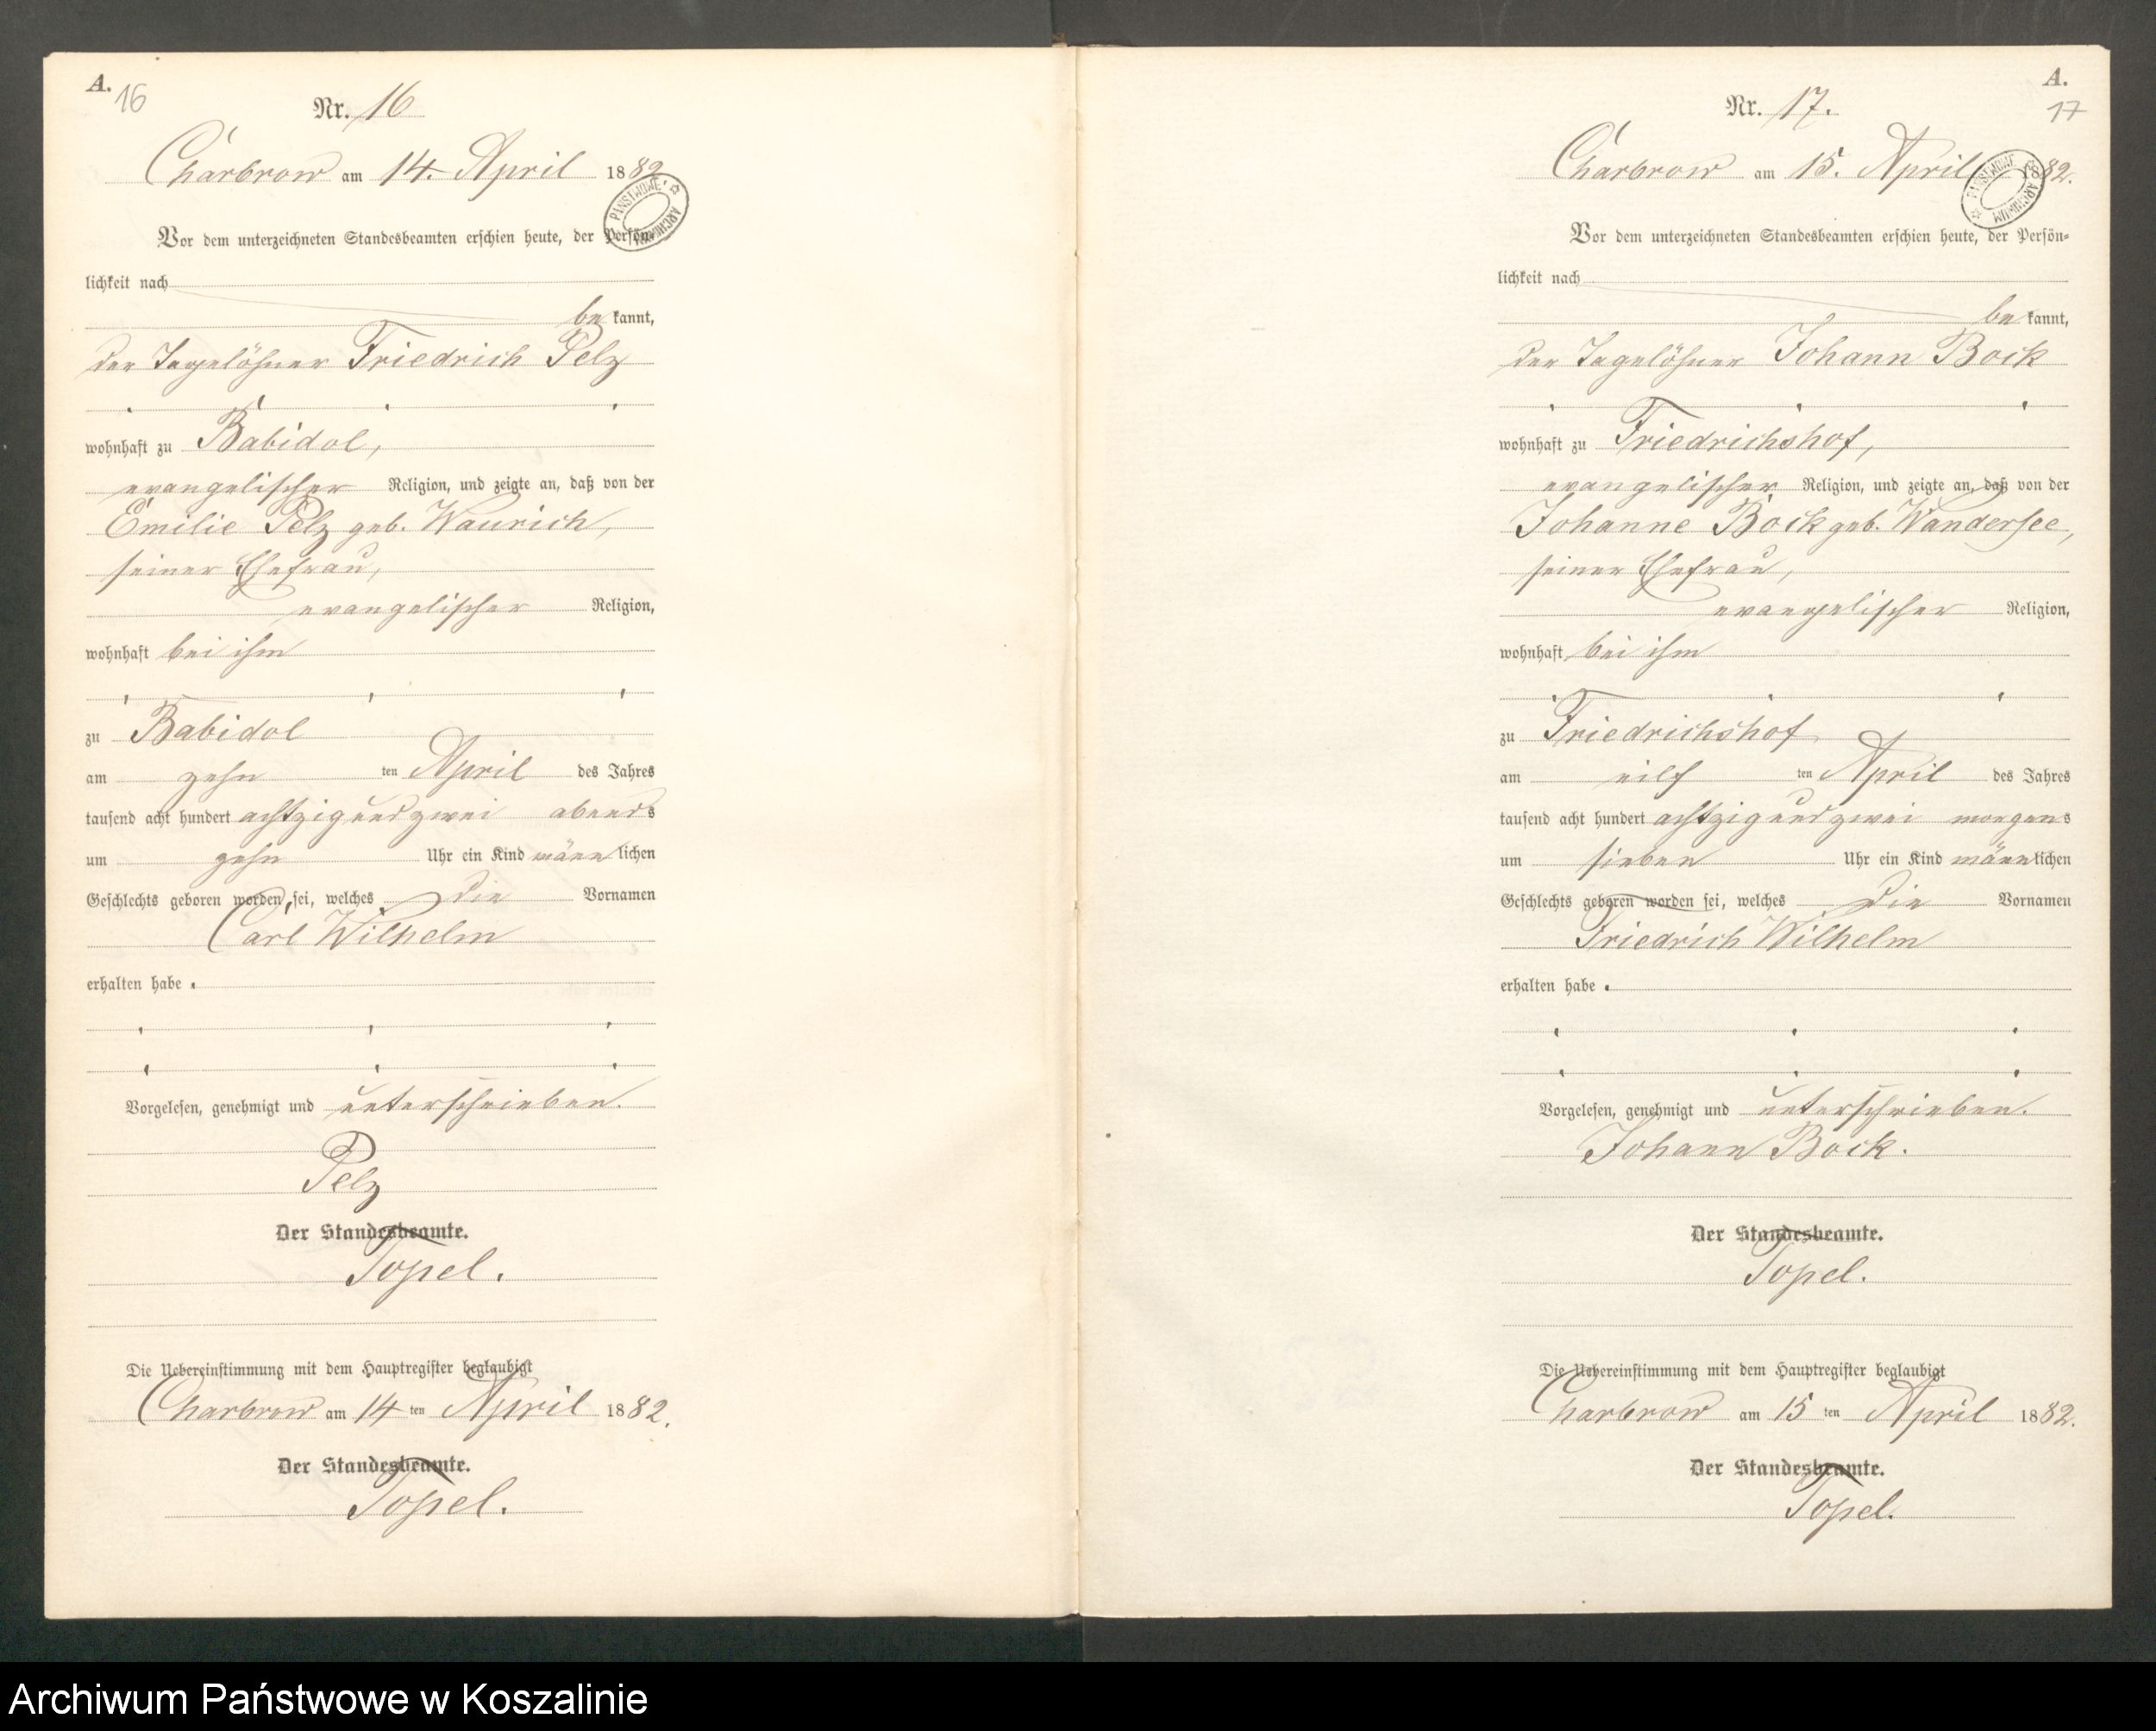 A.
16
Nr. 16
Charbrow am 14. April 1882
Vor dem unterzeichneten Standesbeamten erschien heute, der Persön-
lichkeit nach
be kannt,
der Tagelöhner Friedrich Pelz
wohnhaft zu Babidol,
evangelischer Religion, und zeigte an, daß von der
Emilie Pelz geb. Waurich,
seiner Ehefrau,
evangelischer Religion,
wohnhaft bei ihm
zu Babidol
am zehn ten April des Jahres
tausend acht hundert achtzig und zwei abends
um zehn Uhr ein Kind männlichen
Geschlechts geboren worden sei, welches die Vornamen
Carl Wilhelm
erhalten habe.
Vorgelesen, genehmigt und unterschrieben.
Pelz
Der Standesbeamte.
Topel.
Die Uebereinstimmung mit dem Hauptregister beglaubigt
Charbrow am 14 ten April 1882.
Der Standesbeamte.
Topel.
A.
17
Nr. 17.
Charbrow am 15. April 1882.
Vor dem unterzeichneten Standesbeamten erschien heute, der Persön-
lichkeit nach
be kannt,
der Tagelöhner Johann Bock
wohnhaft zu Friedrichshof,
evangelischer Religion, und zeigte an, daß von der
Johanne Bock geb. Wandersee,
seiner Ehefrau,
evangelischer Religion,
wohnhaft bei ihm
zu Friedrichshof
am eilf ten April des Jahres
tausend acht hundert achtzig und zwei morgens
um sieben Uhr ein Kind männlichen
Geschlechts geboren worden sei, welches die Vornamen
Friedrich Wilhelm
erhalten habe.
Vorgelesen, genehmigt und unterschrieben.
Johann Bock.
Der Standesbeamte.
Topel.
Die Uebereinstimmung mit dem Hauptregister beglaubigt
Charbrow am 15 ten April 1882.
Der Standesbeamte.
Topel.
ARCHIWUM PAŃSTWOWE
ARCHIWUM PAŃSTWOWE
Archiwum Państwowe w Koszalinie